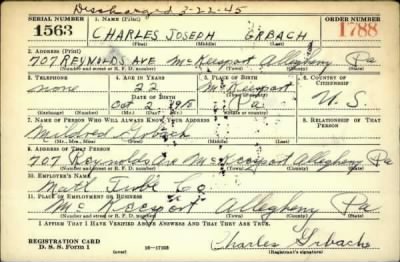 Discharged 3-22-45
SERIAL NUMBER 1. NAME (Print) ORDER NUMBER
1563 CHARLES JOSEPH GRBACH 1788
(First) (Middle) (Last)
2. ADDRESS (Print)
707 REYNOLDS AVE McKeesport Allegheny Pa
(Number and street or R. F. D. number) (Town) (County) (State)
3. TELEPHONE 4. AGE IN YEARS 5. PLACE OF BIRTH 6. COUNTRY OF CITIZENSHIP
none 22 McKeesport
DATE OF BIRTH
Oct 2 1918 Pa U. S.
(Exchange) (Number) (Mo.) (Day) (Yr.) (State or country)
7. NAME OF PERSON WHO WILL ALWAYS KNOW YOUR ADDRESS 8. RELATIONSHIP OF THAT PERSON
Mildred Grbach
(Mr., Mrs., Miss) (First) (Middle) (Last)
9. ADDRESS OF THAT PERSON
707 Reynolds Ave McKeesport Allegheny Pa
(Number and street or R. F. D. number) (Town) (County) (State)
10. EMPLOYER'S NAME
Natl Tube Co
11. PLACE OF EMPLOYMENT OR BUSINESS
McKeesport Allegheny Pa
(Number and street or R. F. D. number) (Town) (County) (State)
I AFFIRM THAT I HAVE VERIFIED ABOVE ANSWERS AND THAT THEY ARE TRUE.
REGISTRATION CARD
D. S. S. Form 1 (over) Charles Grbach
(Registrant's signature)